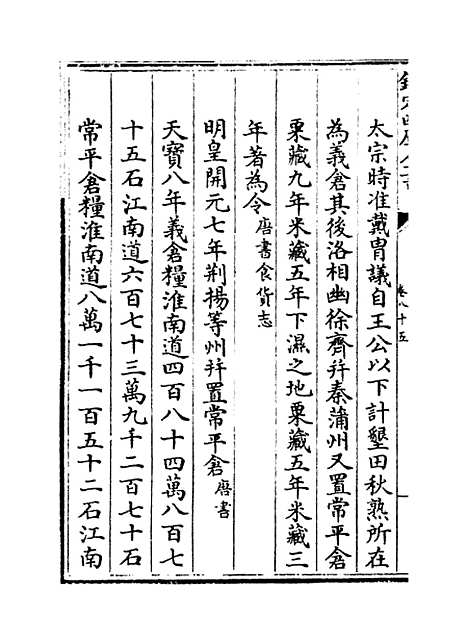 太宗時准戴冑議自王公以下計墾田秋熟所在
為義倉其後洛相幽徐齊并秦蒲州又置常平倉
粟藏九年米藏五年下濕之地粟藏五年米藏三
年著為令唐書食貨志
明皇開元七年荆揚等州并置常平倉唐書
天寳八年義倉糧淮南道四百八十四萬八百七
十五石江南道六百七十三萬九千二百七十石
常平倉糧淮南道八萬一千一百五十二石江南
卷八十五